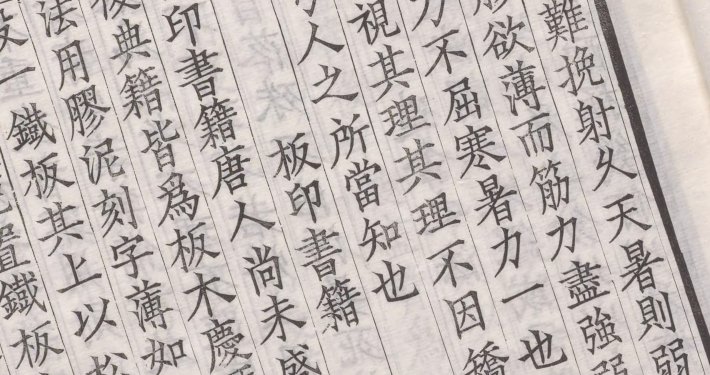 難挽射久天暑則弱
欲薄而筋力盡強弱
力不屈寒暑力一也
視其理其理不因矯
人之所當知也
板印書籍
印書籍唐人尚未盛
典籍皆爲板木慶
法用膠泥刻字薄如
一鐵板其上以松
置鐵板